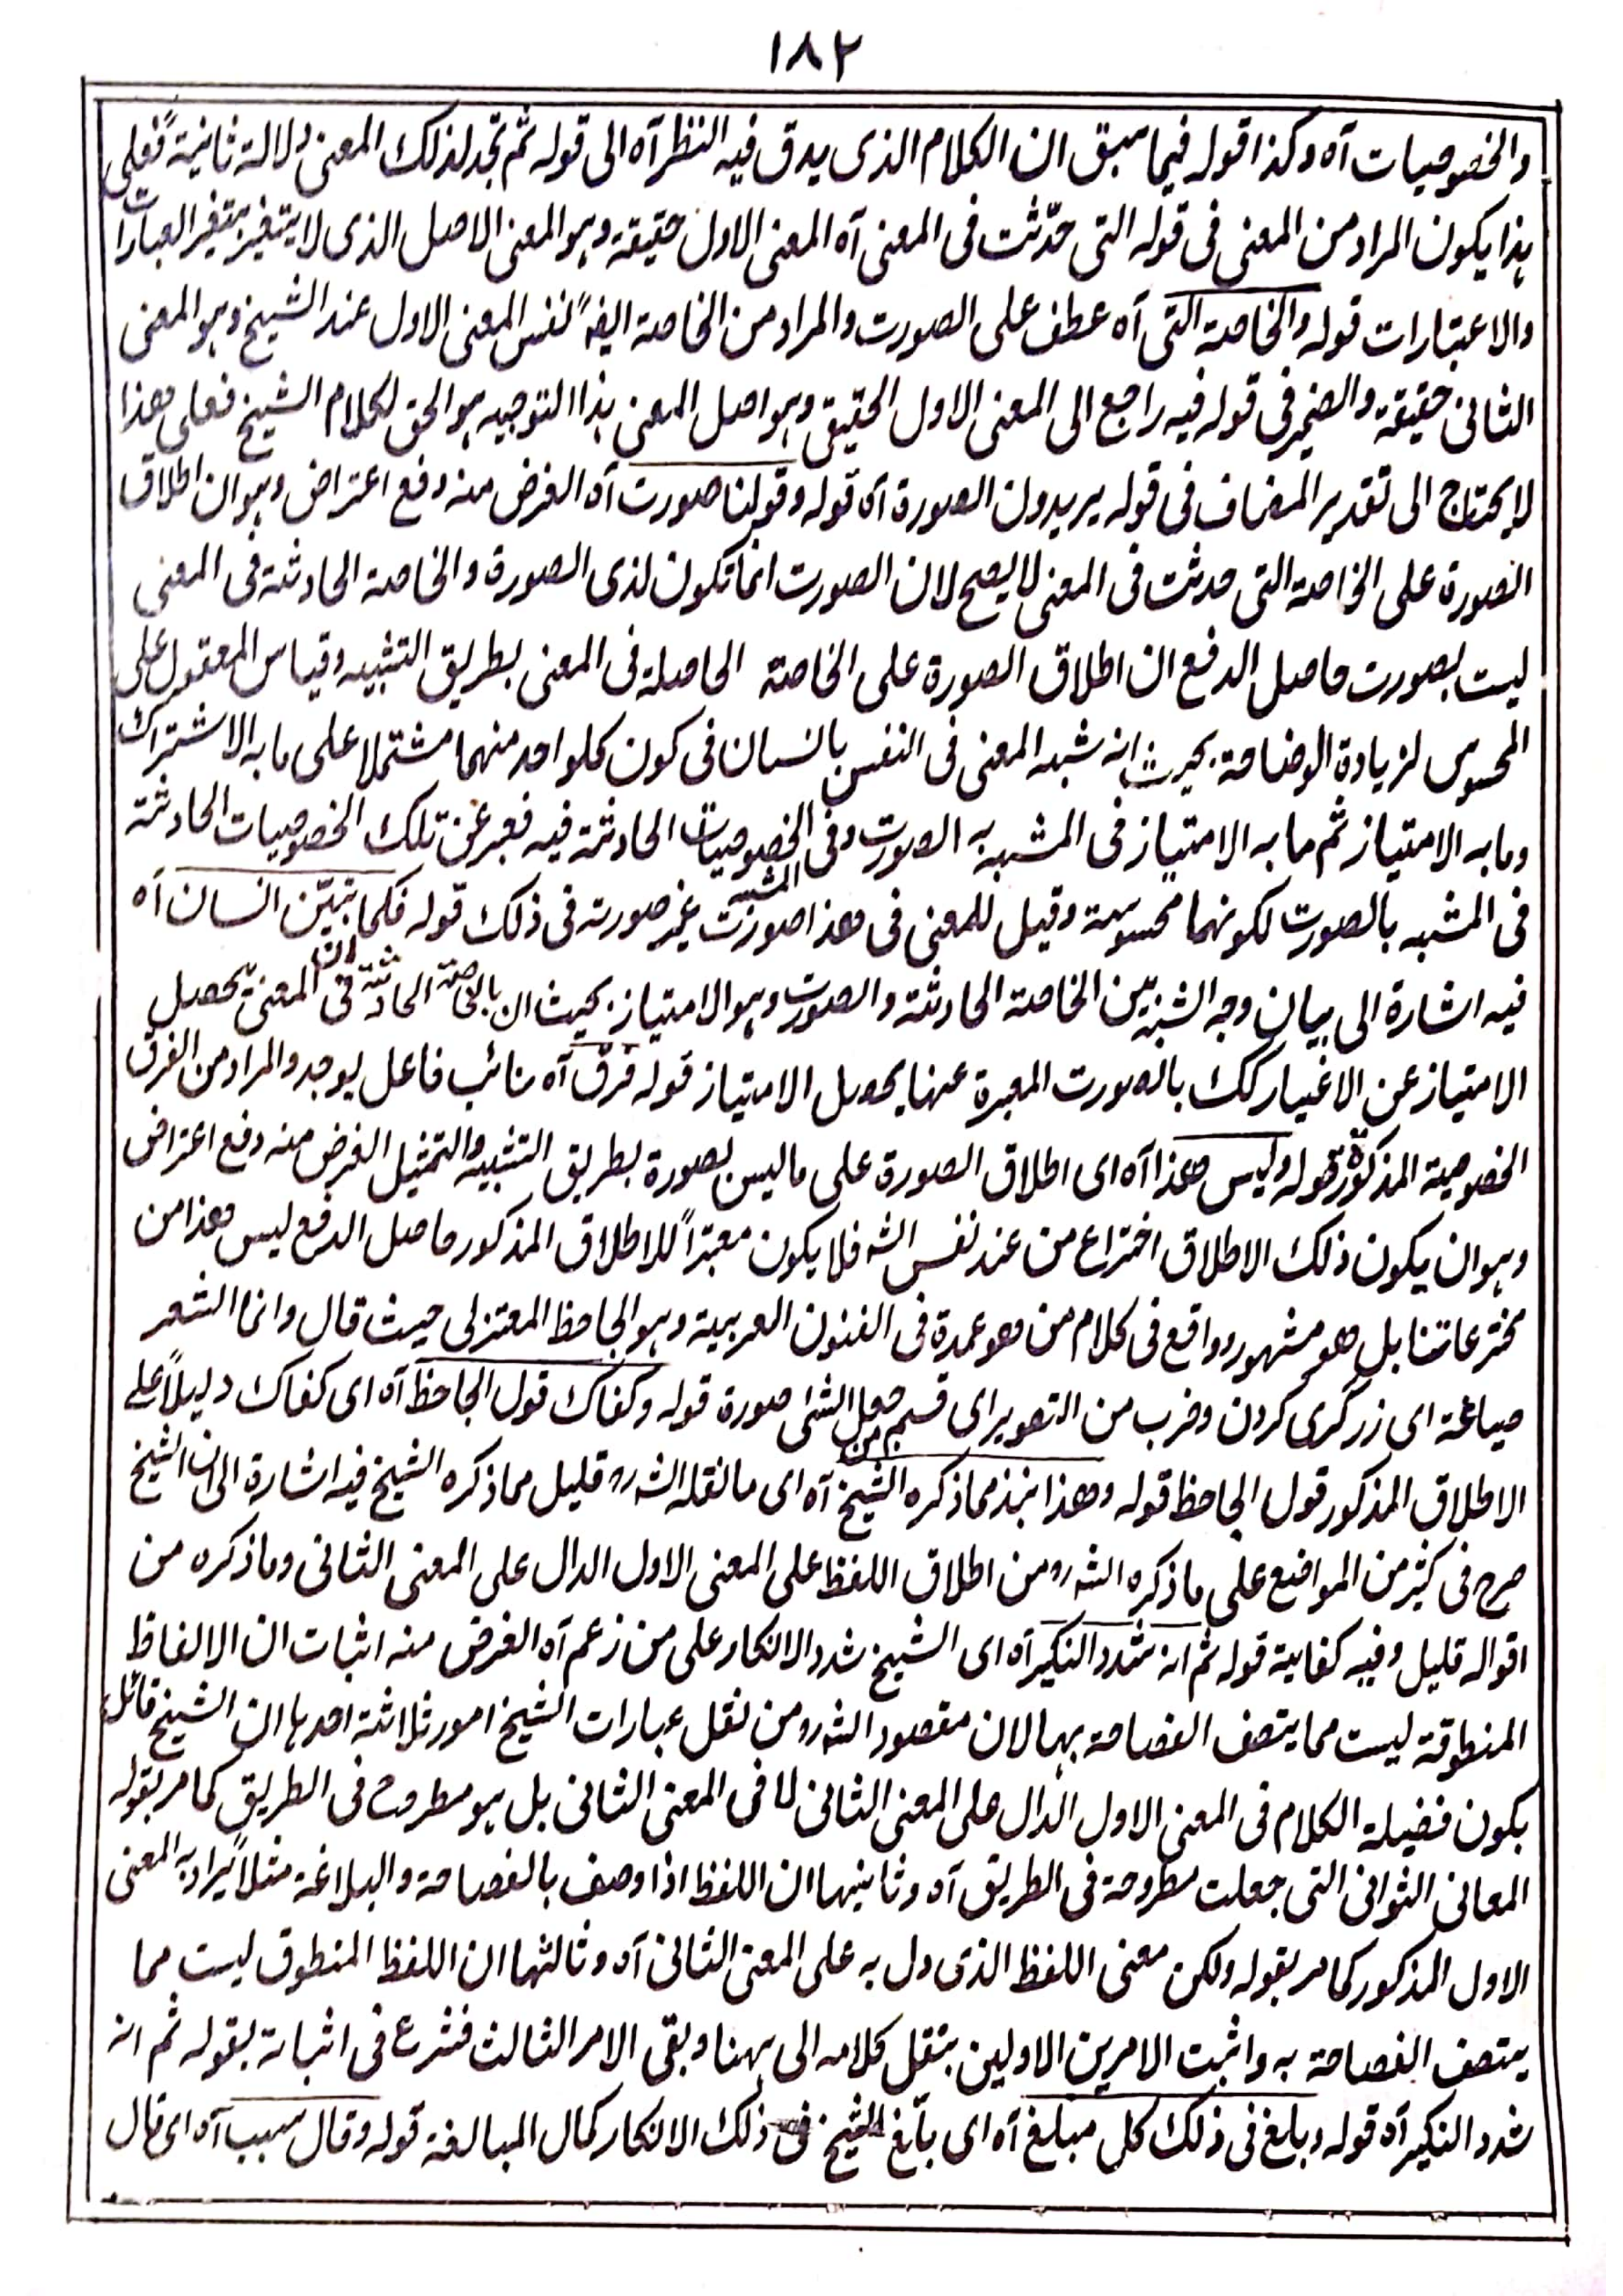 ١٨٢
والخصوصيات آه وكذا قوله فيما سبق ان الكلام الذى يدق فيه النظر آه الى قوله ثم تجد لذلك المعنى دلالة ثانية فعلى
هذا يكون المراد من المعنى فى قوله التى حدّثت فى المعنى آه المعنى الاول حقيقة وهو المعنى الاصل الذى لا يتغير بتغير العبارات
والاعتبارات قوله والخاصة التى آه عطف على الصورت والمراد من الخاصة ايضًا نفس المعنى الاول عند الشيخ وهو المعنى
الثانى حقيقة والضمير فى قوله فيه راجع الى المعنى الاول الحقيقى وهو اصل المعنى هذا التوجيه هو الحق لكلام الشيخ فعلى هذا
لا يحتاج الى تقدير المضاف فى قوله يريدون الصورة آه قوله وقولنا صورت آه الغرض منه دفع اعتراض وهو ان اطلاق
الصورة على الخاصة التى حدثت فى المعنى لا يصح لان الصورت انما تكون لذى الصورة والخاصة الحادثة فى المعنى
ليست بصورت حاصل الدفع ان اطلاق الصورة على الخاصة الحاصلة فى المعنى بطريق التشبيه وقياس المعقول على
المحسوس لزيادة الوضاحة بحيث انه شبه المعنى فى النفس بانسان فى كون كلواحد منهما مشتملا على ما به الاشتراك
وما به الامتياز ثم ما به الامتياز فى المشبه به الصورت وفى المشبه الخصوصيات الحادثة فيه فعبر عن تلك الخصوصيات الحادثة
فى المشبه بالصورت لكونهما محسوسة وقيل للمعنى فى هذا صورت غير صورته فى ذلك قوله فكما تبيّن انسان آه
فيه اشارة الى بيان وجه الشبه بين الخاصة الحادثة والصورت وهو الامتياز بحيث ان بالخاصة الحادثة فى المعنى يحصل
الامتياز عن الاغيار كك بالصورت المعبرة عنها يحصل الامتياز قوله فرق آه نائب فاعل يوجد والمراد من الفرق
الخصوصية المذكورة قوله وليس هذا آه اى اطلاق الصورة على ما ليس بصورة بطريق التشبيه والتمثيل الغرض منه دفع اعتراض
وهو ان يكون ذلك الاطلاق اختراع من عند نفس الشه فلا يكون معتبراً للاطلاق المذكور حاصل الدفع ليس هذا من
مخترعاتنا بل هو مشهور وواقع فى كلام من هو عمدة فى الفنون العربية وهو الجاحظ المعتزلى حيث قال وانما الشعر
صياغة اى زرگرى كردن وضرب من التصوير اى قسم من جعل الشئى صورة قوله وكفاك قول الجاحظ آه اى كفاك دليلاً على
الاطلاق المذكور قول الجاحظ قوله وهذا نبذ مما ذكره الشيخ آه اى ما نقله الشه رو قليل مما ذكره الشيخ فيه اشارة الى ان الشيخ
صرح فى كثير من المواضع على ما ذكره الشه رو من اطلاق اللفظ على المعنى الاول الدال على المعنى الثانى وما ذكره من
اقواله قليل وفيه كفاية قوله ثم انه شدد النكير آه اى الشيخ شدد الانكار على من زعم آه الغرض منه اثبات ان الالفاظ
المنطوقة ليست مما يتصف الفصاحة بها لان مقصود الشه رو من نقل عبارات الشيخ امور ثلاثة احدها ان الشيخ قائل
بكون فضيلة الكلام فى المعنى الاول الدال على المعنى الثانى لا فى المعنى الثانى بل هو مطروح فى الطريق كما مر بقوله
المعانى الثوانى التى جعلت مطروحة فى الطريق آه وثانيها ان اللفظ اذا وصف بالفصاحة والبلاغة مثلاً يراد به المعنى
الاول المذكور كما مر بقوله ولكن معنى اللفظ الذى دل به على المعنى الثانى آه وثالثها ان اللفظ المنطوق ليست مما
يتصف الفصاحة به واثبت الامرين الاولين بنقل كلامه الى ههنا وبقى الامر الثالث فشرع فى اثباته بقوله ثم انه
شدد النكير آه قوله وبلغ فى ذلك كل مبلغ آه اى بلّغ الشيخ فى ذلك الانكار كمال المبالغة قوله وقال سبب آه اى قال